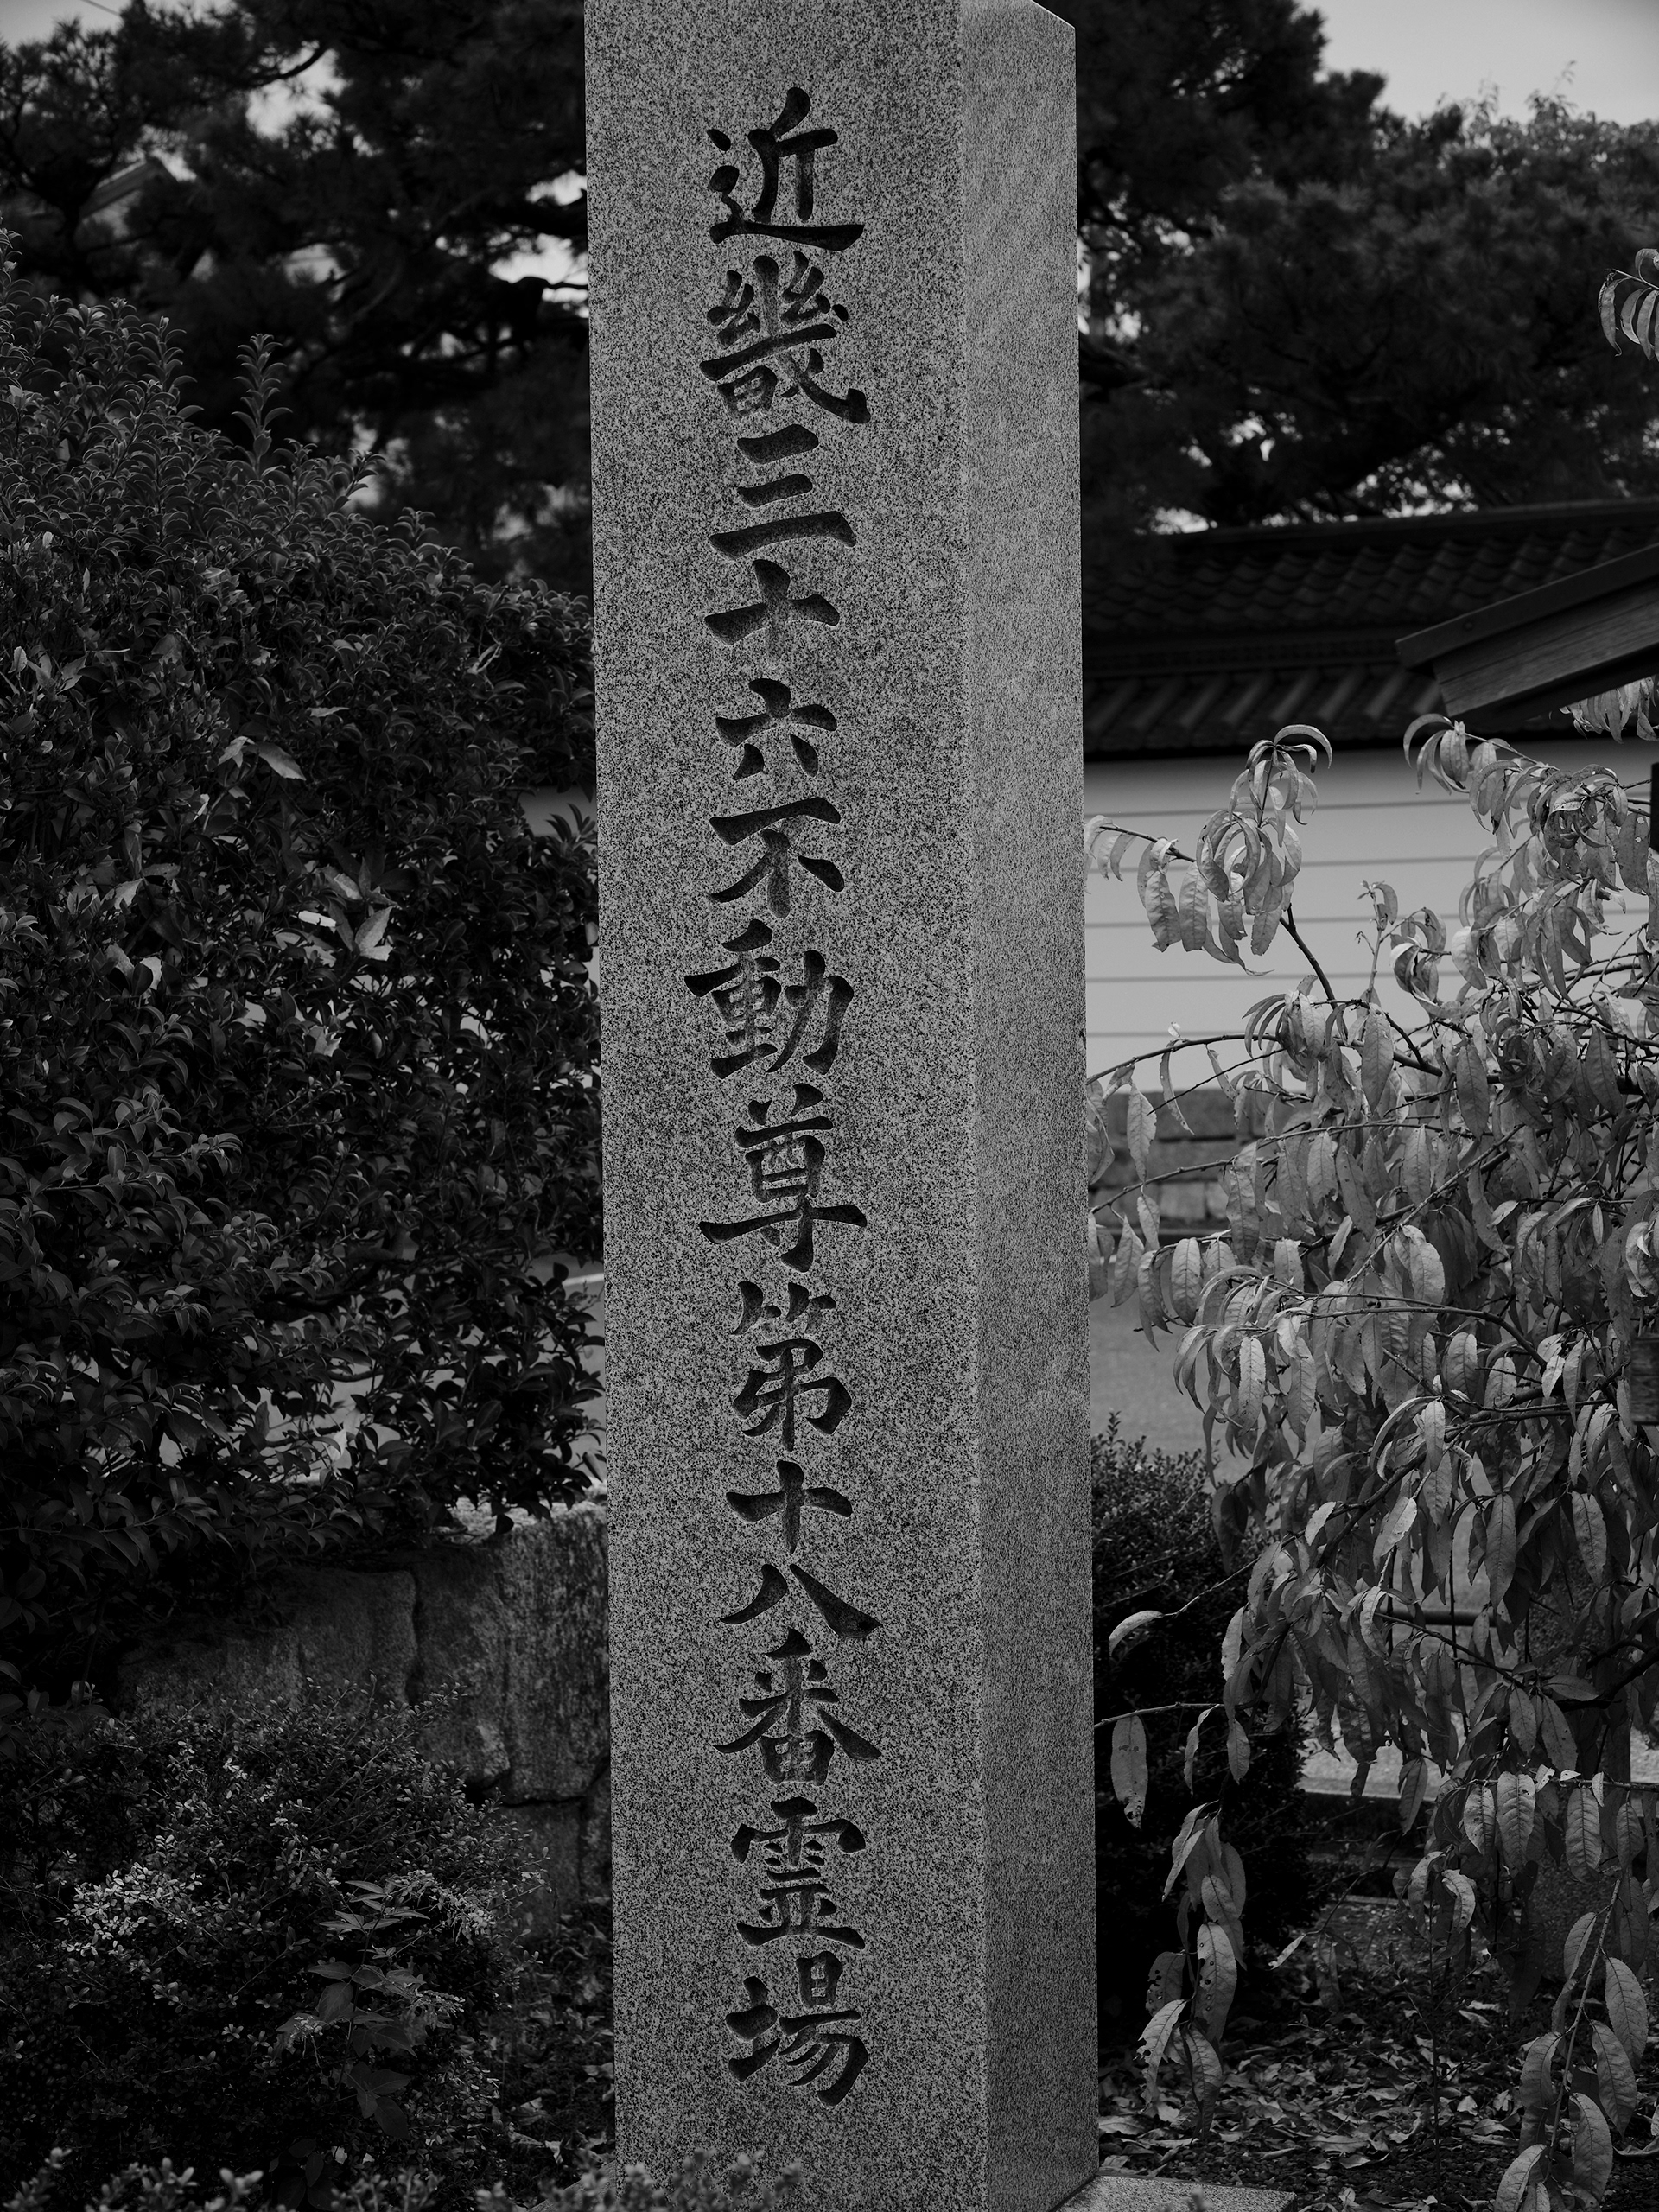 近畿三十六不動尊第十八番霊場